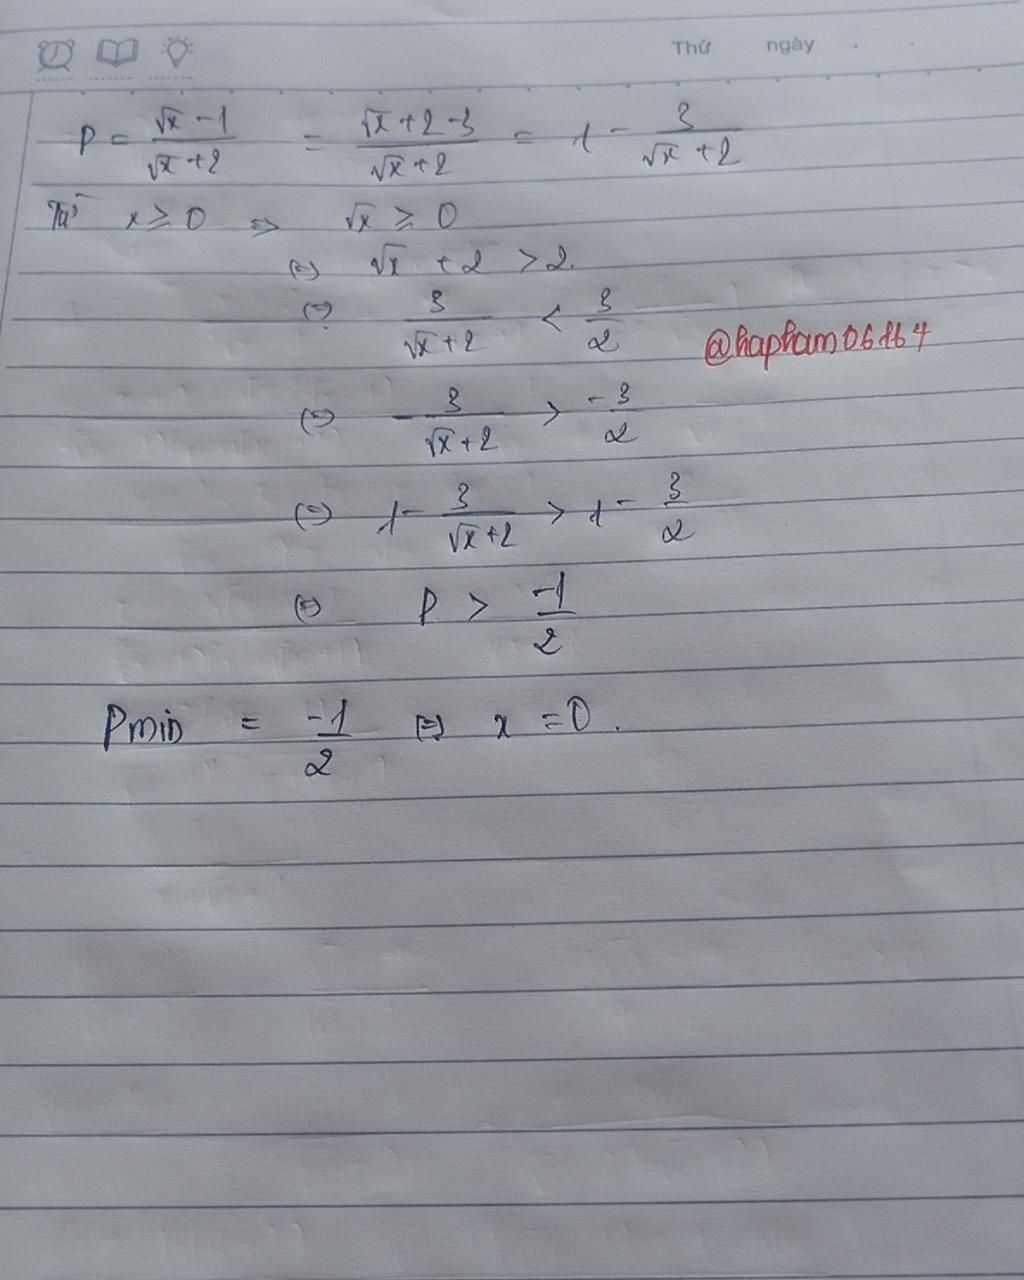 Thứ ngày . .
P = (√x - 1)/(√x + 2) = (√x + 2 - 3)/(√x + 2) = 1 - 3/(√x + 2)
Từ x ≥ 0 => √x ≥ 0
(=) √x + 2 > 2.
(=) 3/(√x + 2) < 3/2
@hapham06164
(=) - 3/(√x + 2) > -3/2
(=) 1 - 3/(√x + 2) > 1 - 3/2
(=) P > -1/2
Pmin = -1/2 (=) x = 0.